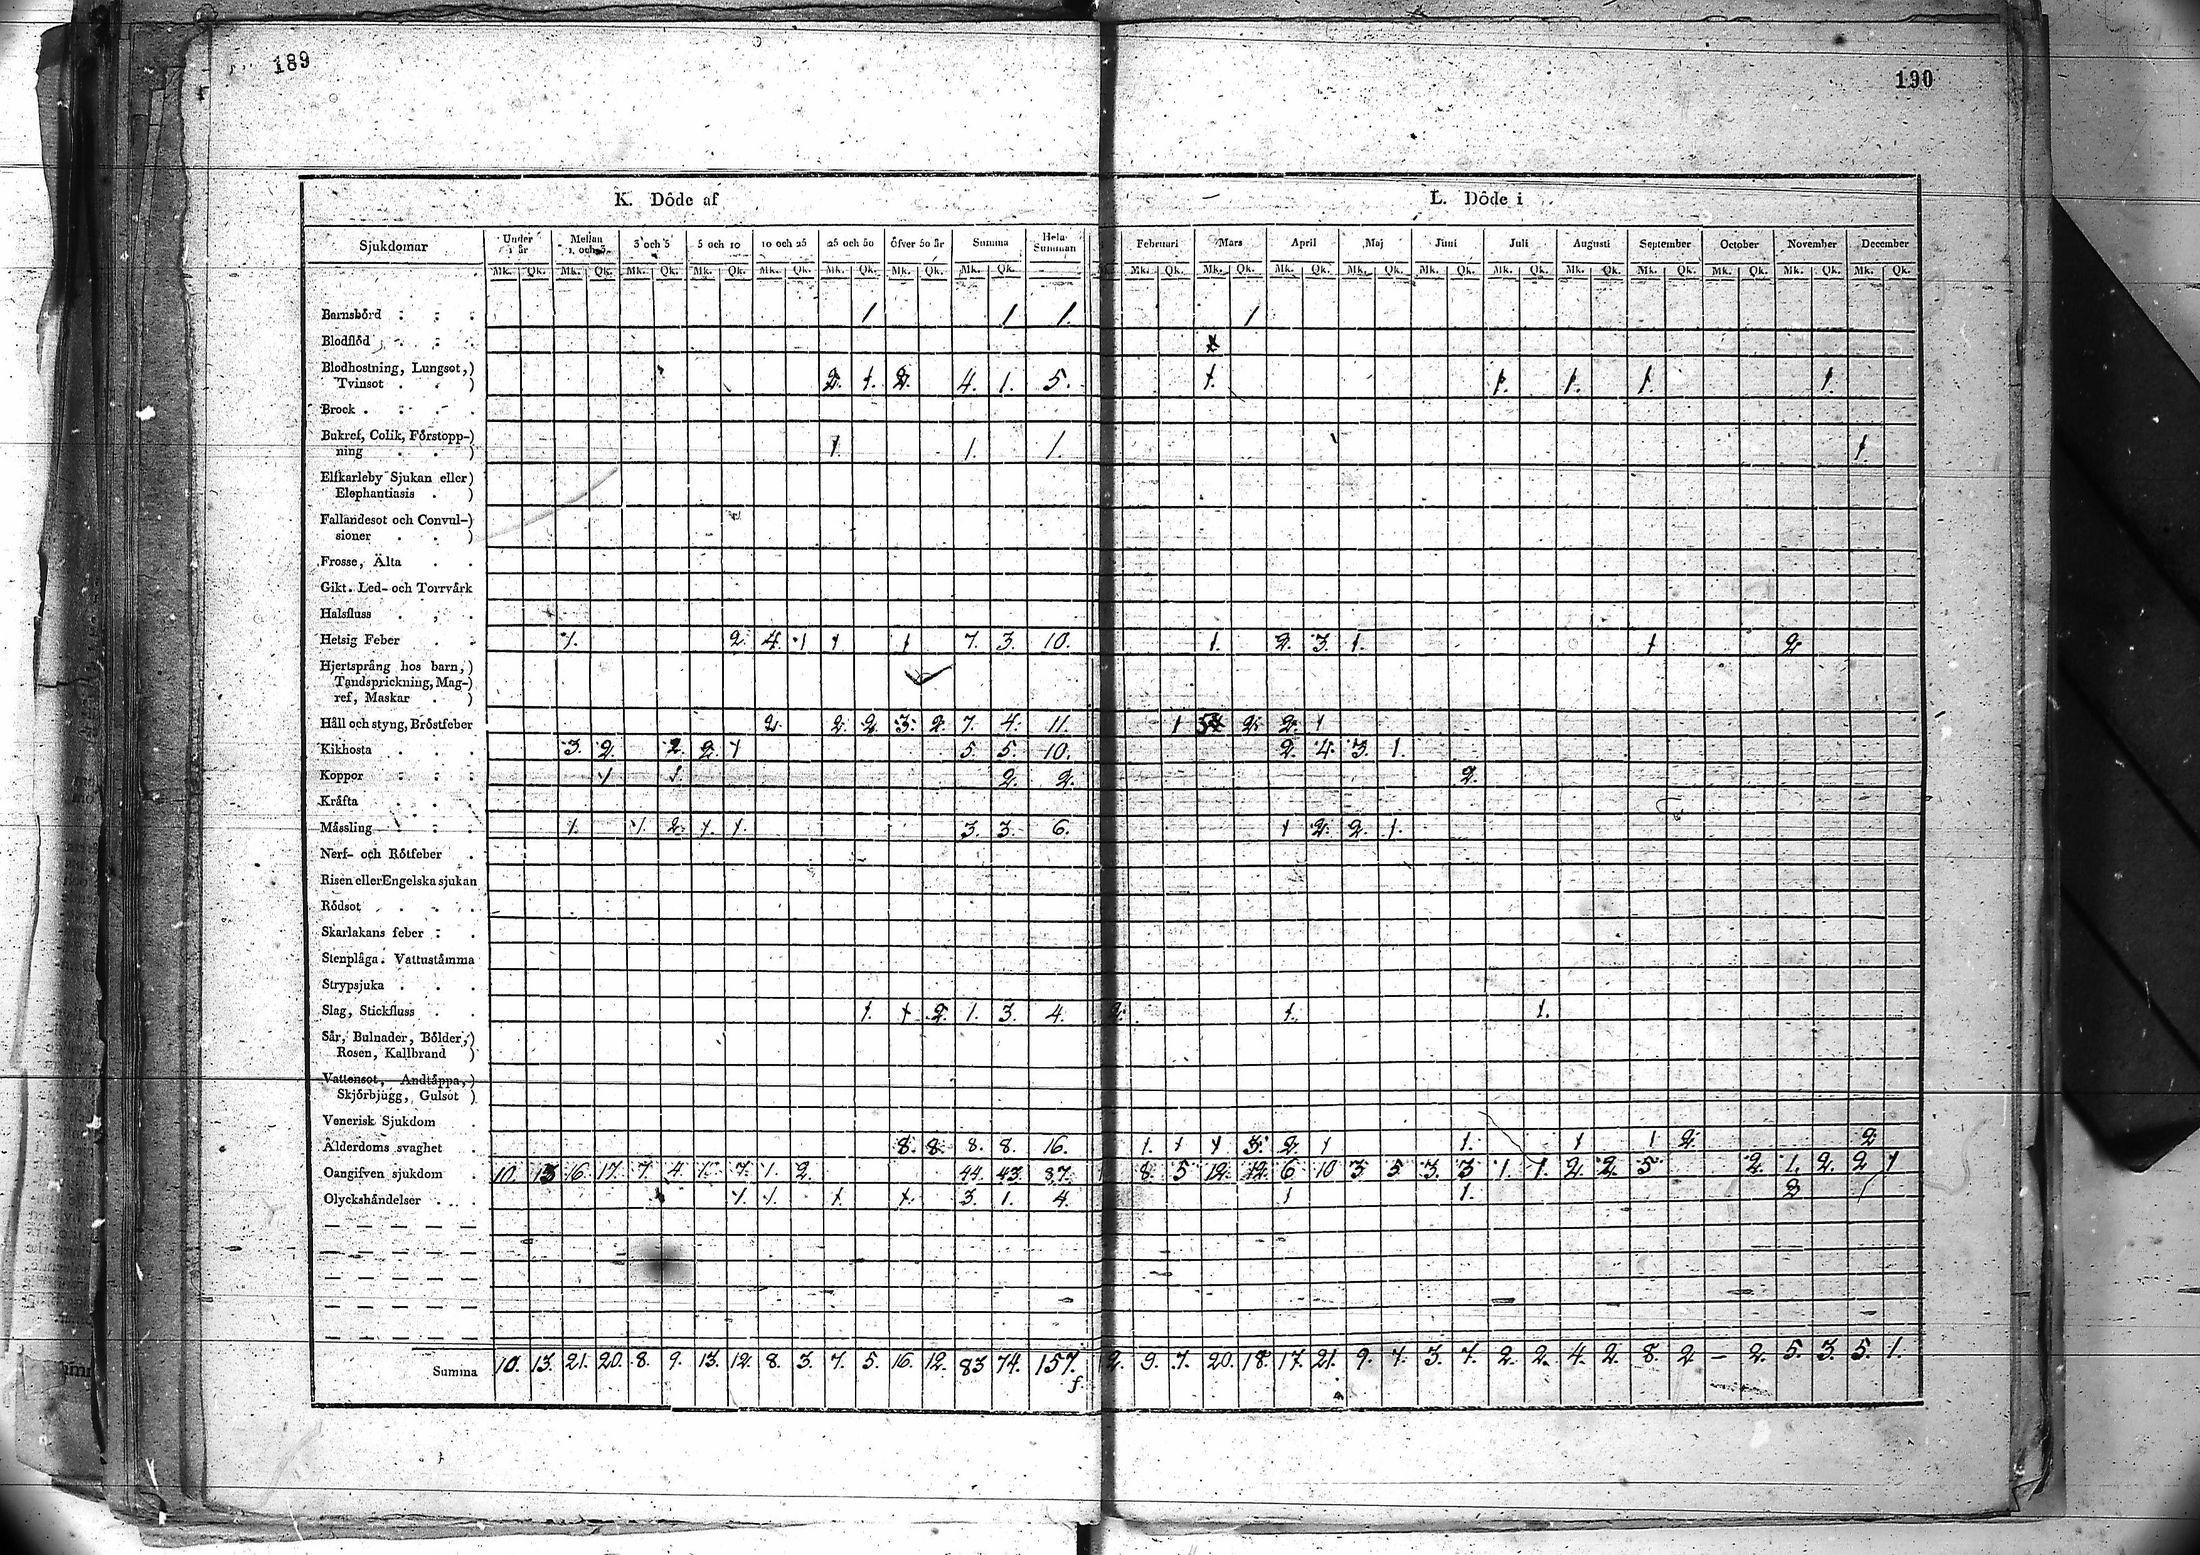 189
190
K. Döde af
L. Döde i
Sjukdomar Under 1 år Mellan 1. och 3. 3 och 5 5 och 10 10 och 25 25 och 50 Öfver 50 år Summa Hela Summan Februari Mars April Maj Juni Juli Augusti September October November December
Mk. Qk. Mk. Qk. Mk. Qk. Mk. Qk. Mk. Qk. Mk. Qk. Mk. Qk. Mk. Qk. Mk. Qk. Mk. Qk. Mk. Qk. Mk. Qk. Mk. Qk. Mk. Qk. Mk. Qk. Mk. Qk. Mk. Qk. Mk. Qk. Mk. Qk.
Barnsbörd 1 1 1. 1
Blodflöd
Blodhostning, Lungsot,)
Tvinsot ) 2. 1. 2. 4. 1. 5. 1. 1. 1. 1. 1.
Brock
Bukref, Colik, Förstopp-)
ning ) 1. 1. 1. 1.
Elfkarleby Sjukan eller)
Elephantiasis )
Fallandesot och Convul-)
sioner )
Frosse, Älta
Gikt. Led- och Torrvärk
Halsfluss
Hetsig Feber 1. 2. 4. 1 1 1 7. 3. 10. 1. 2. 3. 1. 1 2.
Hjertsprång hos barn,)
Tandsprickning, Mag-)
ref, Maskar )
Håll och styng, Bröstfeber 2. 2. 2. 3. 2. 7. 4. 11. 1 2. 2. 1
Kikhosta 3. 2. 2. 2. 1 5. 5. 10. 2. 4. 3. 1.
Koppor 1 1. 2. 2. 2.
Kräfta
Mässling 1. 1. 2. 1. 1. 3. 3. 6. 1 2. 2. 1.
Nerf- och Rötfeber
Risen eller Engelska sjukan
Rödsot
Skarlakans feber
Stenplåga. Vattustämma
Strypsjuka
Slag, Stickfluss 1. 1 2. 1. 3. 4. 2. 1. 1.
Sår, Bulnader, Bölder,)
Rosen, Kallbrand )
Vattensot, Andtäppa,)
Skjörbjugg, Gulsot )
Venerisk Sjukdom
Ålderdoms svaghet 8. 8. 8. 8. 16. 1. 1 1 3. 2. 1 1. 1 1 2. 2
Oangifven sjukdom 10. 13 16. 17. 7. 4. 7. 1. 2. 44. 43. 87. 8. 5 12. 12. 6 10 3 5. 3. 3 1. 1. 2. 2. 5 2. 1. 2. 2 1
Olyckshändelser 1. 1. 1. 1. 3. 1. 4. 1 1. 2 1
Summa 10. 13. 21. 20. 8. 9. 13. 12. 8. 3. 7. 5. 16. 12. 83 74. 157. 2. 9. 7. 20. 18. 17. 21. 9. 7. 3. 7. 2. 2. 4. 2. 8. 2 – 2. 5. 3. 5. 1.